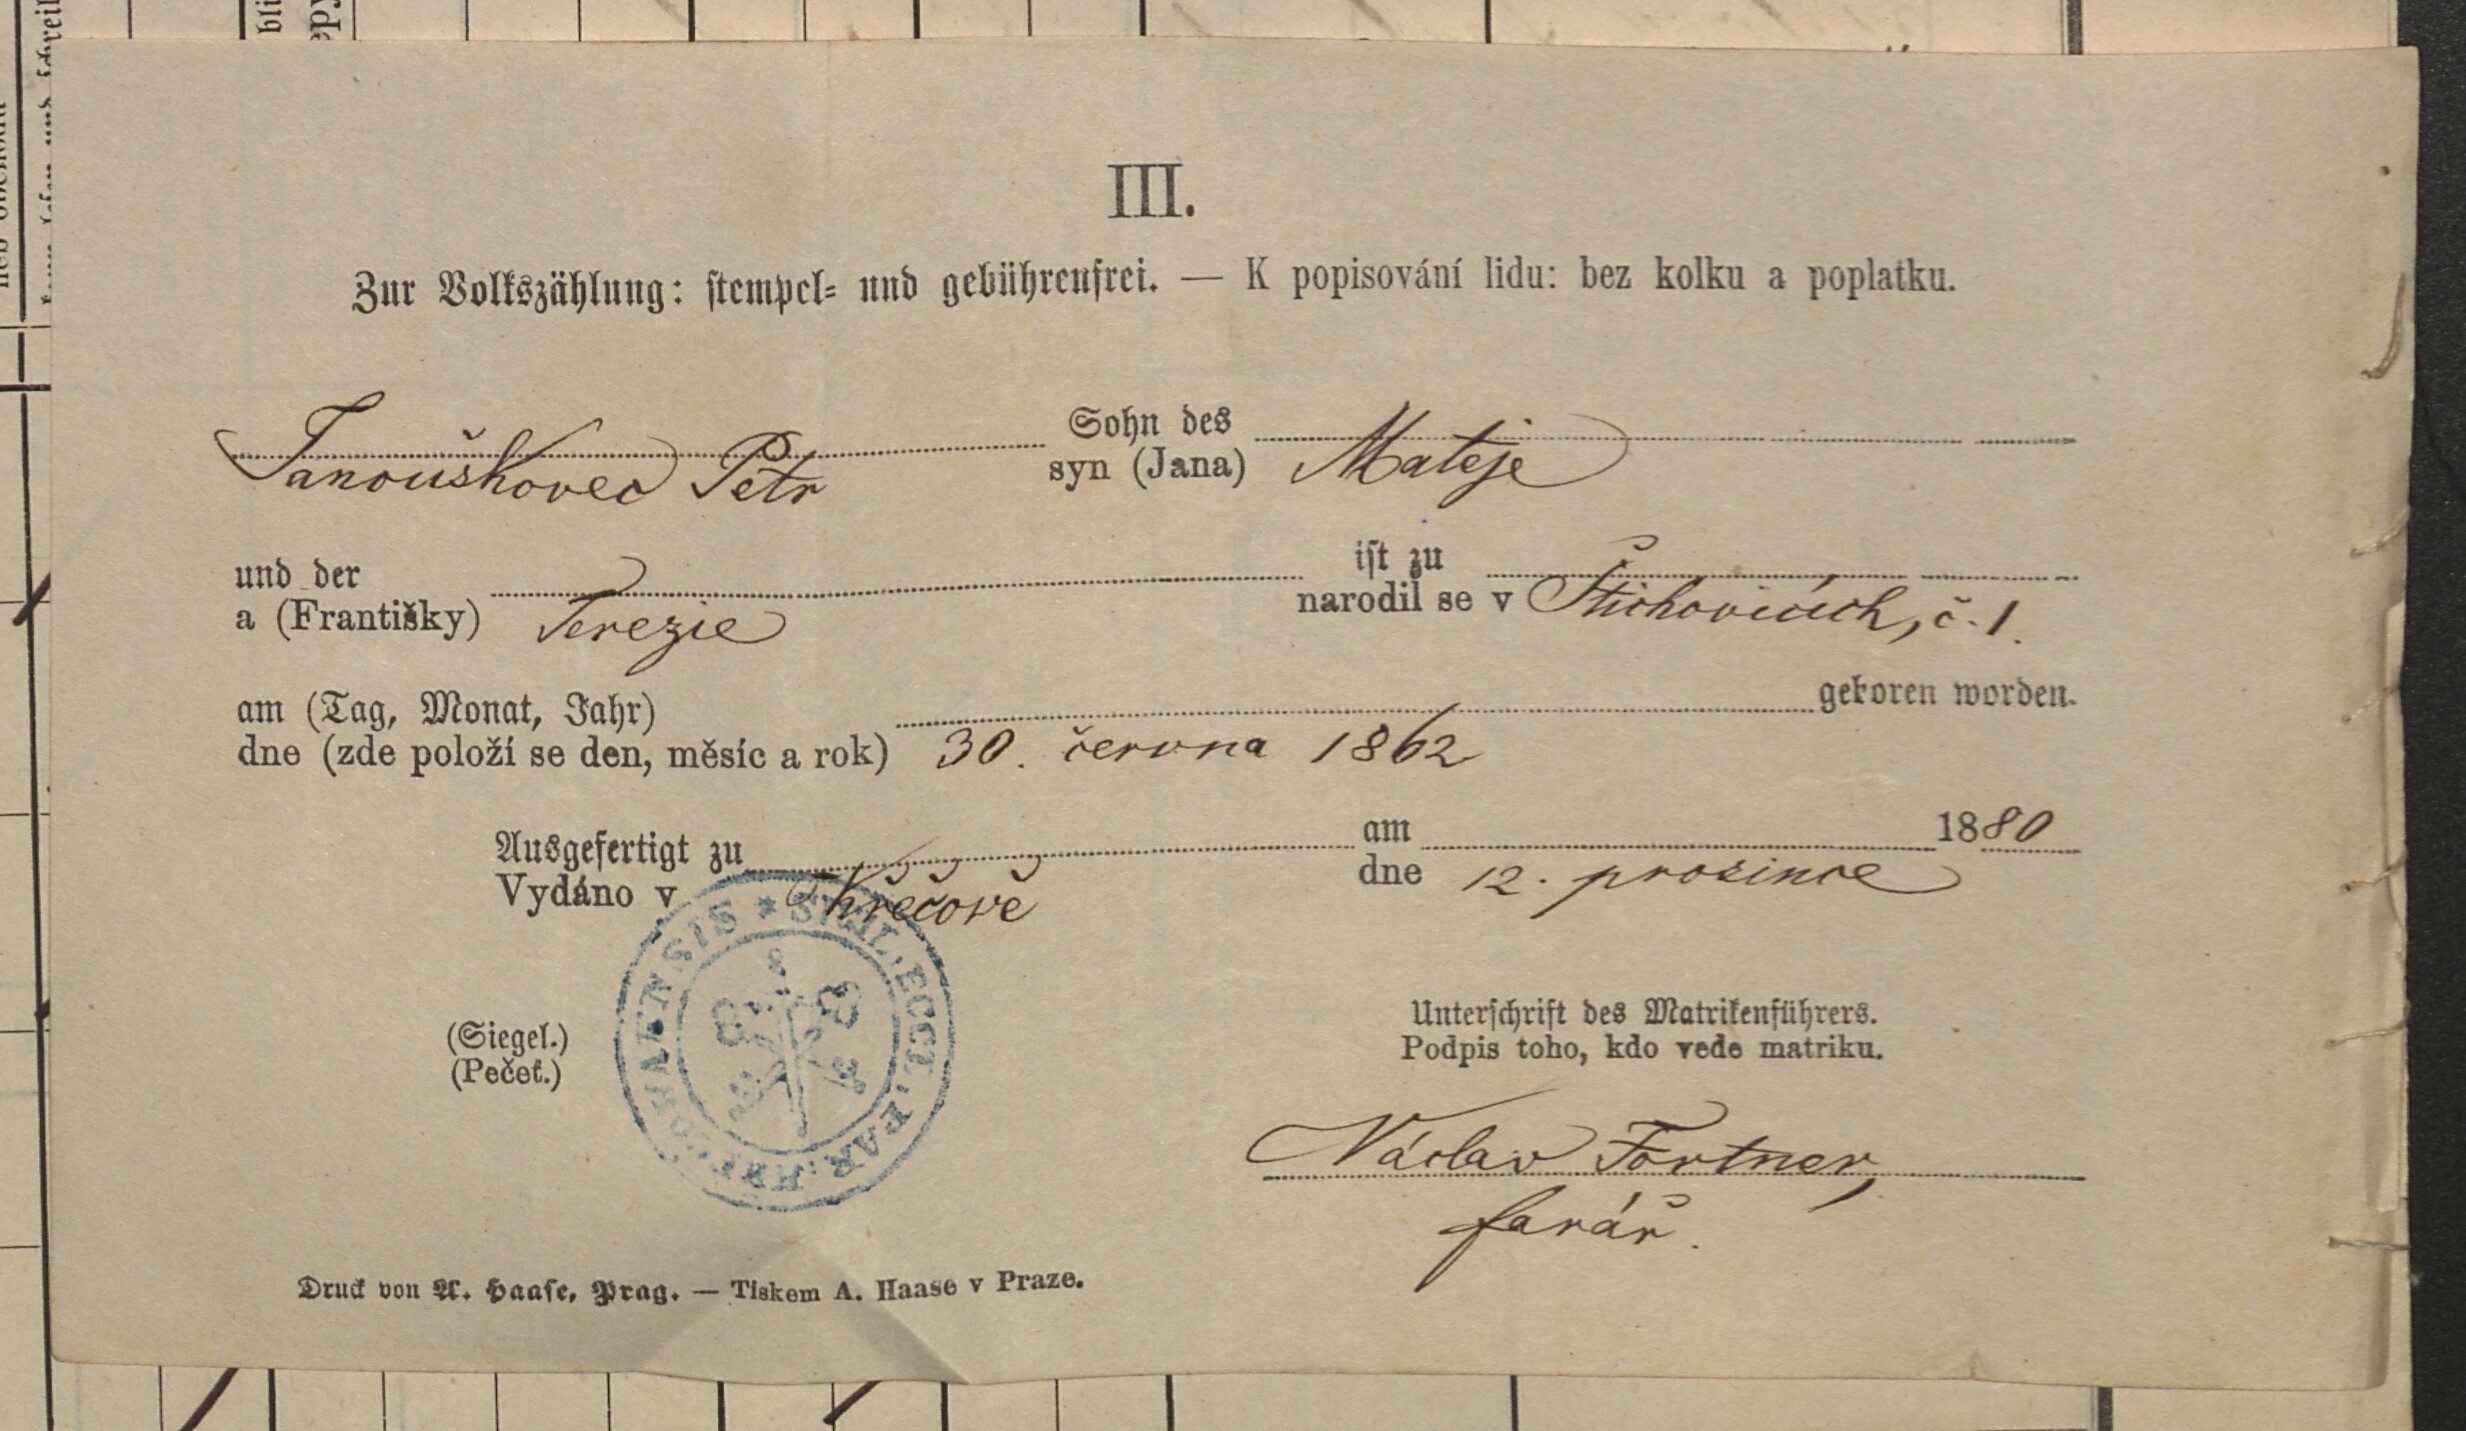 III.
Zur Volkszählung: stempel- und gebührenfrei. — K popisování lidu: bez kolku a poplatku.
Janouškovec Petr Sohn des
syn (Jana) Mateje
und der
a (Františky) Terezie ist zu
narodil se v Štichovicích, č. 1.
am (Tag, Monat, Jahr) geboren worden.
dne (zde položí se den, měsíc a rok) 30. června 1862
Ausgefertigt zu am 1880
Vydáno v Křečově dne 12. prosince
(Siegel.)
(Pečeť.)
SIGIL. ECCL. PAR.
Unterschrift des Matrikenführers.
Podpis toho, kdo vede matriku.
Václav Fortner,
farář.
Druck von A. Haase, Prag. — Tiskem A. Haase v Praze.